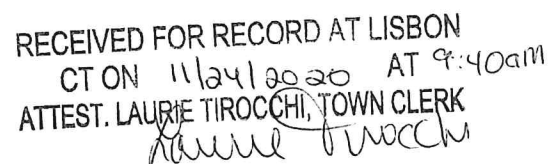 RECEIVED FOR RECORD AT LISBON
CT ON 11/24/2020 AT 9:40am
ATTEST. LAURIE TIROCCHI, TOWN CLERK
Laurie Tirocchi